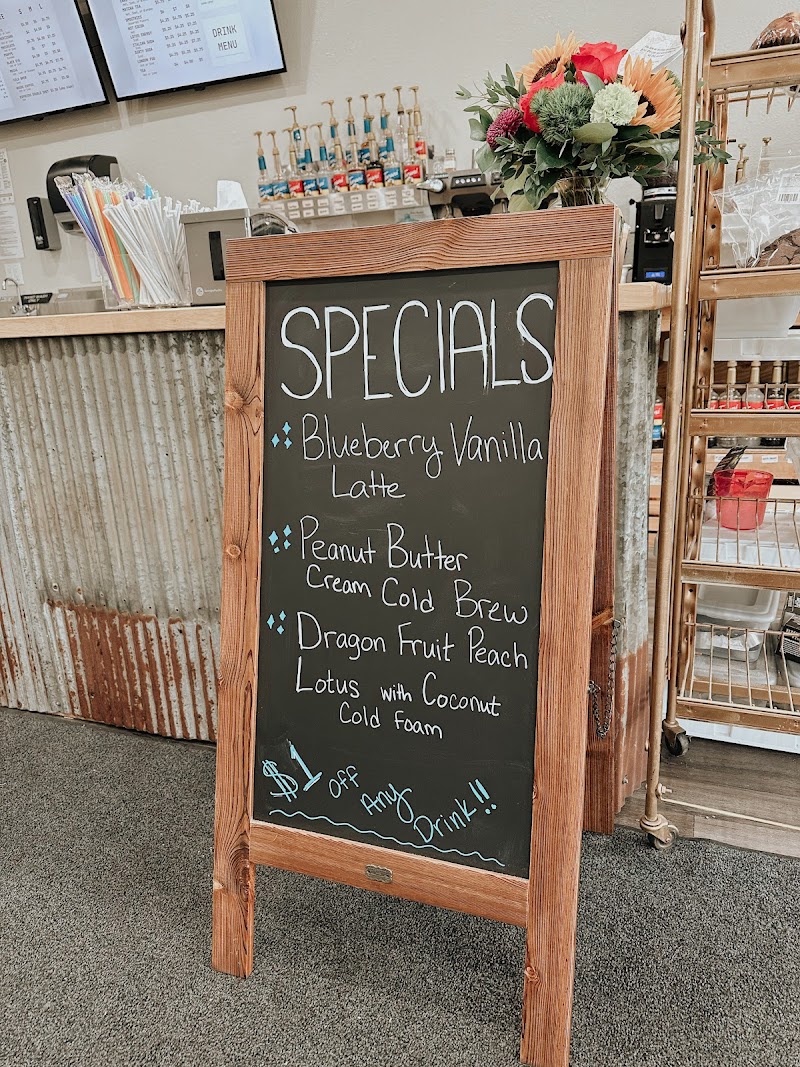 DRINK
MENU
SPECIALS
Blueberry Vanilla
Latte
Peanut Butter
Cream Cold Brew
Dragon Fruit Peach
Lotus with Coconut
Cold Foam
$1 Off Any Drink!!